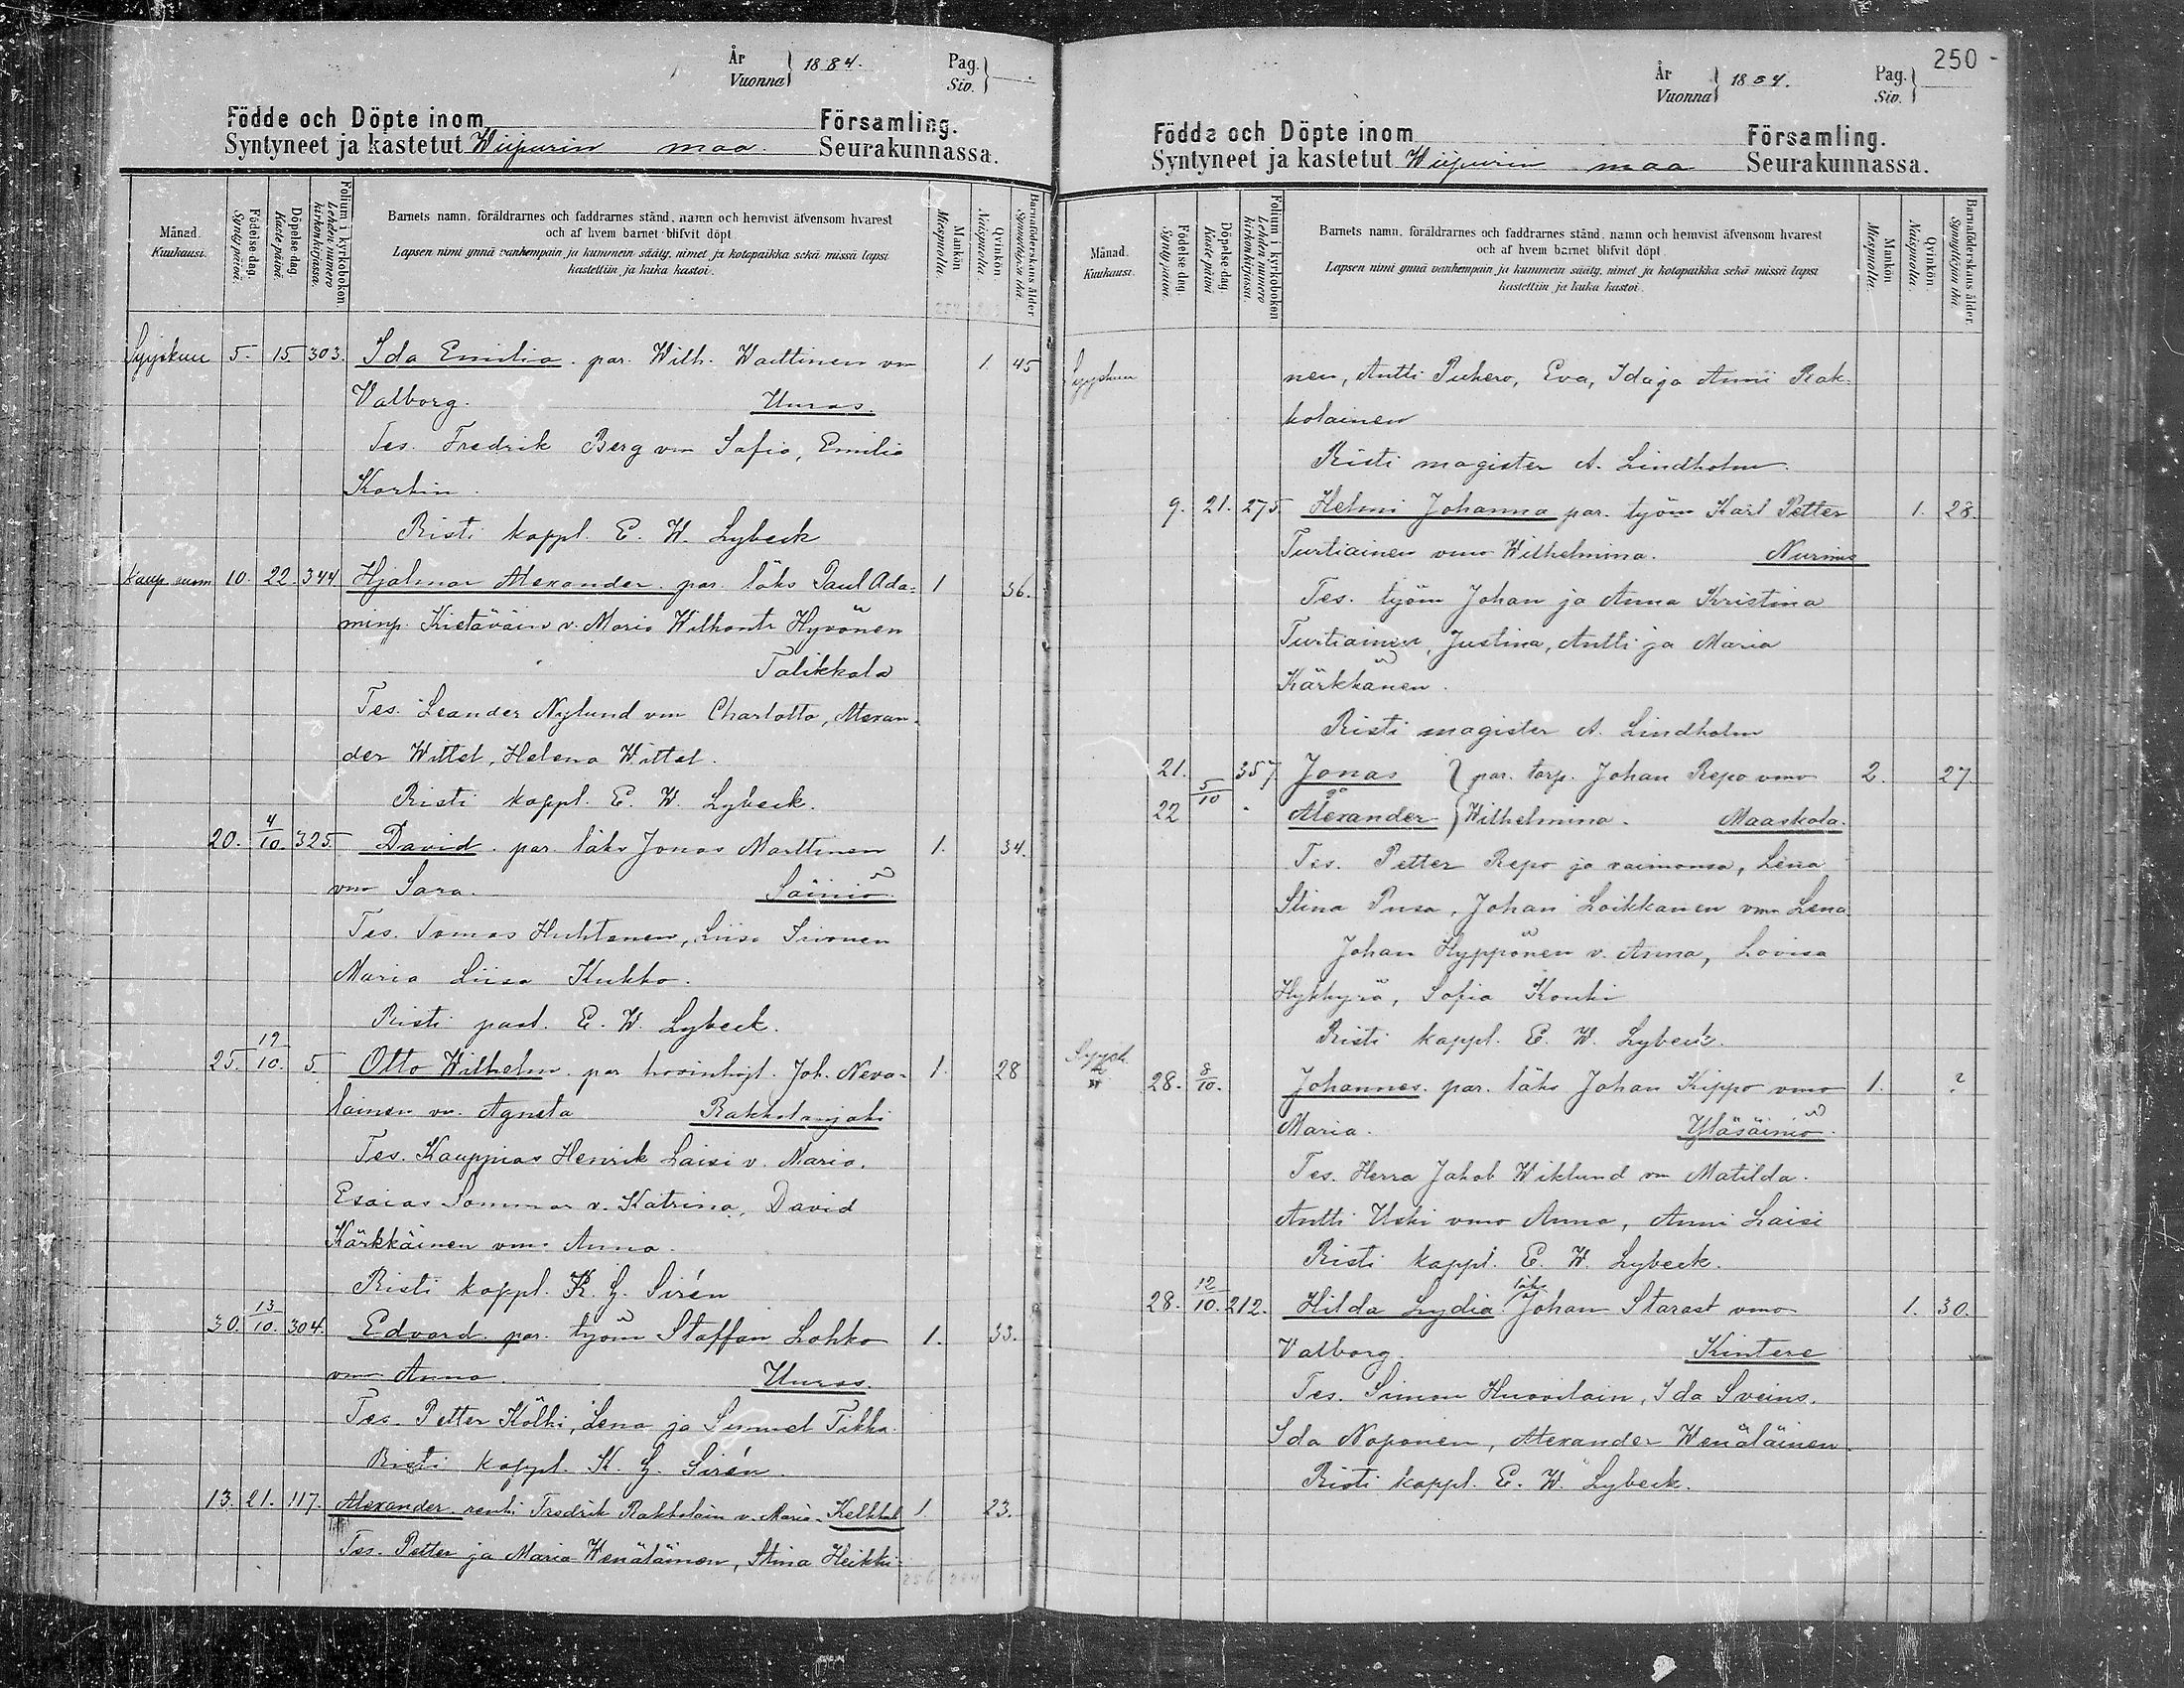 År
Vuonna } 1884.
Pag.
Siv. }
Födde och Döpte inom Församling.
Syntyneet ja kastetut Wiipurin maa Seurakunnassa.
Månad.
Kuukausi.
Födelsedag.
Syntypäivä.
Döpelsedag.
Kastepäivä.
Folium i kyrkoboken.
Lehden numero kirkonkirjassa.
Barnets namn, föräldrarnes och faddrarnes stånd, namn och hemvist äfvensom hvarest
och af hvem barnet blifvit döpt.
Lapsen nimi ynnä vanhempain ja kummein sääty, nimet ja kotopaikka sekä missä lapsi
kastettiin ja kuka kastoi.
Mankön
Miespuolia.
Qvinkön.
Naispuolia.
Barnaföderskans ålder
Synnyttäjän ikä.
Syyskuu 5. 15 303. Ida Emilia. par. Wilh. Waittinen vm 1. 45
Valborg. Uuras.
Tes. Fredrik Berg vm Sofia, Emilia
Korhin.
Risti kappl. E. W. Lybeck
kaup. 10. 22. 344 Hjalmar Alexander. par. läks Paul Ada- 1 36.
minp. Kietäväin v. Maria Wilhont. Hyvönen
Talikkala
Tes. Leander Nylund vm Charlotta, Alexan-
der Wittel, Helena Wittel.
Risti kappl. E. W. Lybeck.
20. 4/10. 325. David. par. läks Jonas Marttinen 1. 34.
vmo Sara. Säiniö
Tes. Tomas Huhtanen, Liisa Siivonen
Maria Liisa Kukko.
Risti past. E. W. Lybeck.
25. 12/10. 5. Otto Wilhelm. par hovinhojt. Joh. Neva- 1. 28
lainen vm. Agneta Rakkolanjoki
Tes. Kauppias Henrik Laisi v. Maria.
Esaias Sommar v. Katrina, David
Kärkkäinen vmo Anna.
Risti kappl. K. G. Sirén
30. 13/10. 304. Edvard. par. työm Staffan Lohko 1. 33.
vmo Anna. Uuras.
Tes. Petter Kölhi, Lena ja Summel Tikka.
Risti kappl. K. G. Sirén.
13. 21. 117. Alexander. renki Fredrik Rakkolain v. Maria. Kelkkal 1. 23.
Tes. Petter ja Maria Wenäläinen, Stina Heikki-
250
År
Vuonna } 1884.
Pag.
Siv. }
Födda och Döpte inom Församling.
Syntyneet ja kastetut Wiipurin maa Seurakunnassa.
Månad.
Kuukausi.
Födelsedag.
Syntypäivä.
Döpelsedag.
Kastepäivä.
Folium i kyrkoboken
Lehden numero kirkonkirjassa.
Barnets namn, föräldrarnes och faddrarnes stånd, namn och hemvist äfvensom hvarest
och af hvem barnet blifvit döpt.
Lapsen nimi ynnä vanhempain ja kummein sääty, nimet ja kotopaikka sekä missä lapsi
kastettiin ja kuka kastoi.
Mankön
Miespuolia.
Qvinkön.
Naispuolia.
Barnaföderskans ålder.
Synnyttäjän ikä
Syyskuu nen, Antti Puhero, Eva, Ida ja Anni Rak-
kolainen
Risti magister A. Lindholm.
9. 21. 275. Helmi Johanna par. työm Karl Petter 1. 28.
Turtiainen vmo Wilhelmina. Nurmis
Tes. työm Johan ja Anna Kristina
Turtiainen, Justina, Antti ja Maria
Kärkkänen.
Risti magister A. Lindholm
21. 5/10 357 Jonas } par. torp. Johan Repo vmo 2. 27.
22 Alexander } Wilhelmina. Maaskola.
Tes. Petter Repo ja vaimonsa, Lena
Stina Pusa, Johan Loikkanen vmo Lena
Johan Hyppönen v. Anna, Lovisa
Hykkyrä, Sofia Kouki
Risti kappl. E. W. Lybeck.
Syysk. 28. 8/10. Johannes. par. läks Johan Kippo vmo 1. ?
Maria. Yläsäiniö.
Tes. Herra Jakob Wiklund vm Matilda.
Antti Uski vmo Anna, Anni Laisi
Risti kappl. E. W. Lybeck.
28. 12/10. 212. Hilda Lydia läks Johan Starast vmo 1. 30.
Valborg. Kintere
Tes. Simon Huovilain, Ida Sveins.
Ida Noponen, Alexander Wenäläinen.
Risti kappl. E. W. Lybeck.